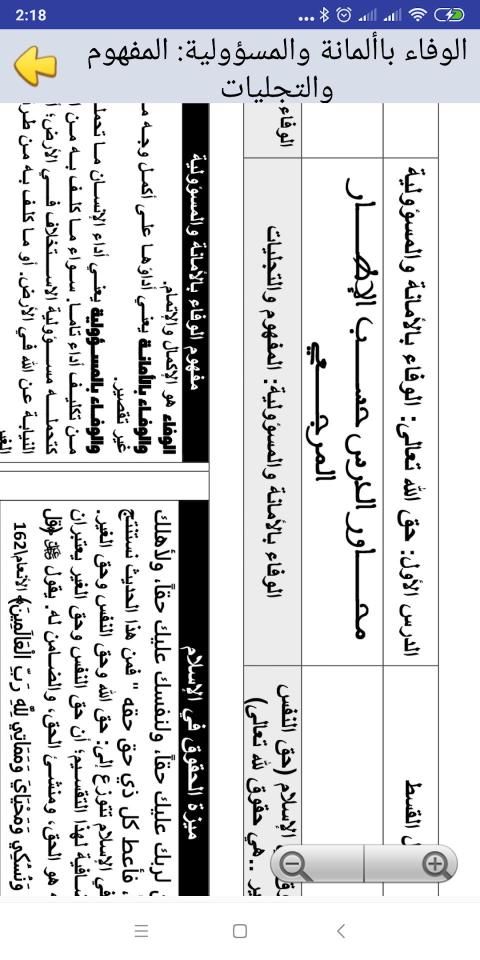 2:18
الوفاء باألمانة والمسؤولية: المفهوم
والتجليات
الدرس الأول: حق الله تعالى: الوفاء بالأمانة والمسؤولية
ل القسط
محاور الدرس حسب الإطار
المرجعي
الوفاء بالأمانة والمسؤولية: المفهوم والتجليات
الوفاء
الإسلام (حق النفس
ير ..هي حقوق لله تعالى)
مفهوم الوفاء بالأمانة والمسؤولية
الوفاء هو الإكمال والإتمام.
والوفاء بالأمانة يعني أداؤها على أكمل وجه م
غير تقصير.
والوفاء بالمسؤولية يعني أداء الإنسان ما تحمل
من تكليف أداء تاما. سواء ما كلف به من ا
كتحمله مسؤولية الاستخلاف في الأرض؛ أ
النيابة عن الله في الأرض. أو ما كلف به من طر
الغير
ميزة الحقوق في الإسلام
ن لربك عليك حقاً، ولنفسك عليك حقاً، ولأهلك
، فأعط كل ذي حق حقه " فمن هذا الحديث نستنتج
في الإسلام تتوزع إلى: حق الله وحق النفس وحق الغير.
ـافية لهذا التقسيم؛ أن حق النفس وحق الغير يعتبران
ه هو الحق، ومنشئ الحق، والضامن له. يقول ﷻ ﴿قل
وَنُسُكِي وَمَحْيَايَ وَمَمَاتِي لِلَّهِ رَبِّ الْعَالَمِينَ﴾ الأنعام/162